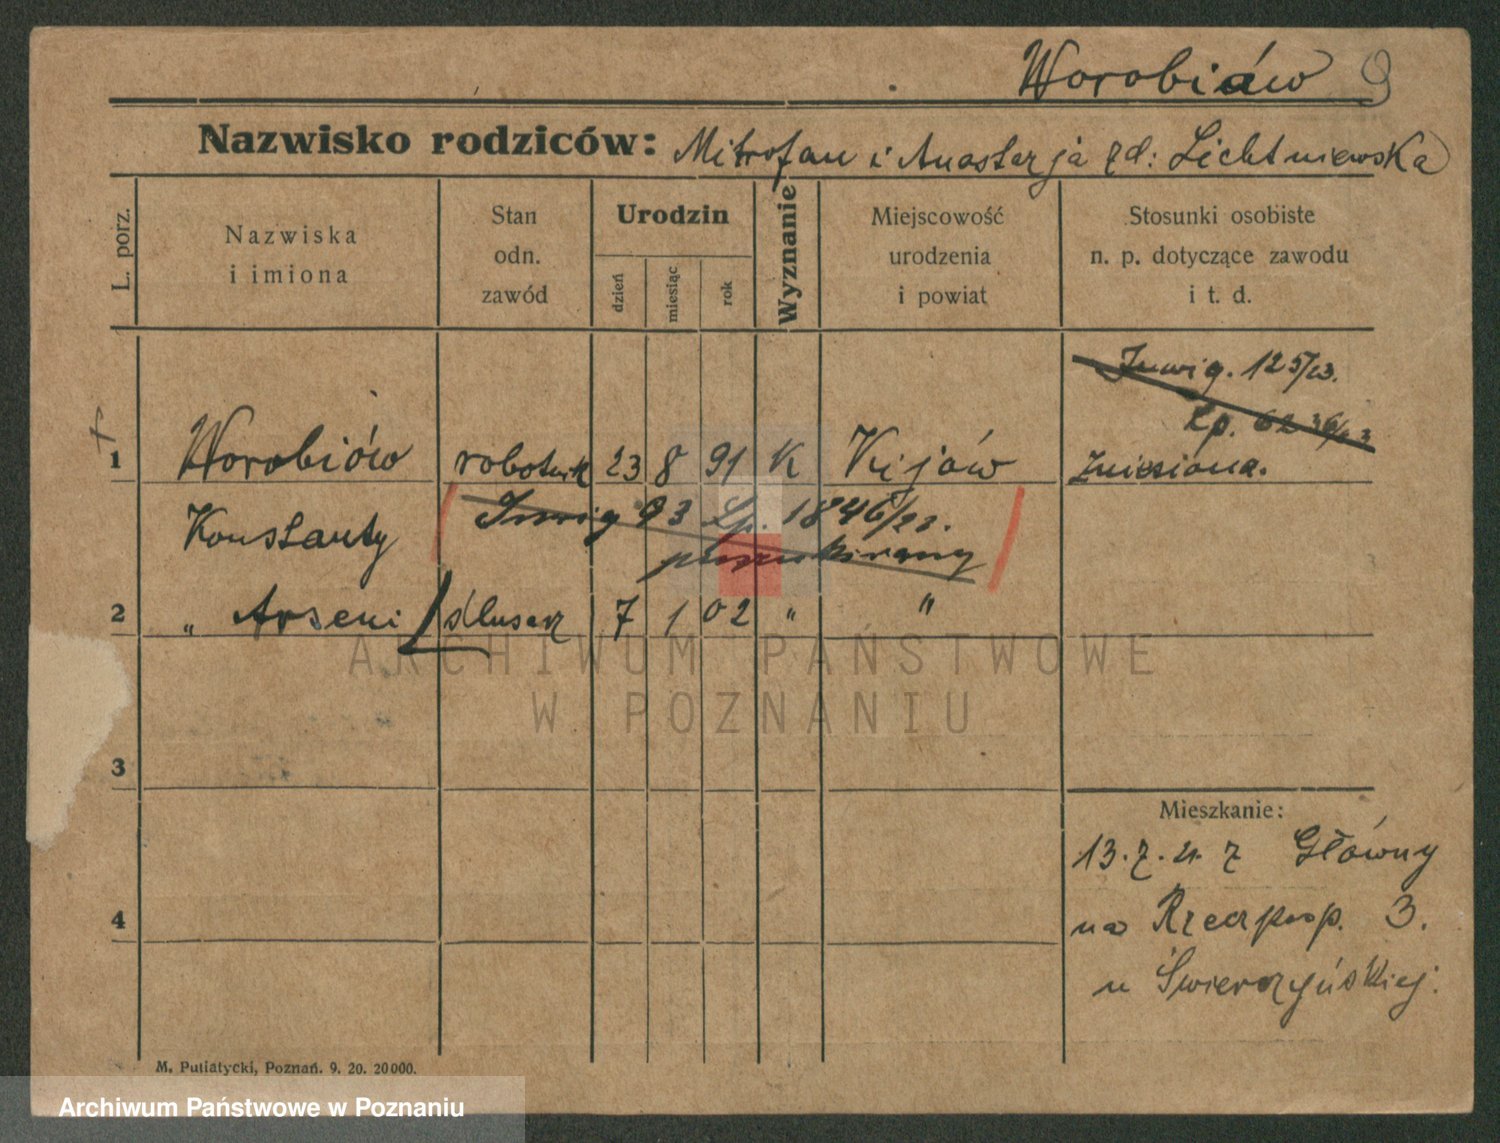 Worobiów 9
Nazwisko rodziców: Mitrofan i Anastazja zd: Lichtniewska
L. porz.
Nazwiska
i imiona
Stan
odn.
zawód
Urodzin
dzień
miesiąc
rok
Wyznanie
Miejscowość
urodzenia
i powiat
Stosunki osobiste
n. p. dotyczące zawodu
i t. d.
Inwig. 125/23.
Lp. 6236/23
1 Worobiów robotnik 23 8 91 K Kijów zniesiona.
Konstanty
Inwig 93 Lp. 1846/22.
poszukiwany
2 " Arseni ślusarz 7 1 02 " "
3
4
Mieszkanie:
13.7.21 z Główny
na Rzeczposp. 3.
u Świerczyńskiej.
M. Putiatycki, Poznań. 9. 20. 20000.
ARCHIWUM PAŃSTWOWE
W POZNANIU
Archiwum Państwowe w Poznaniu